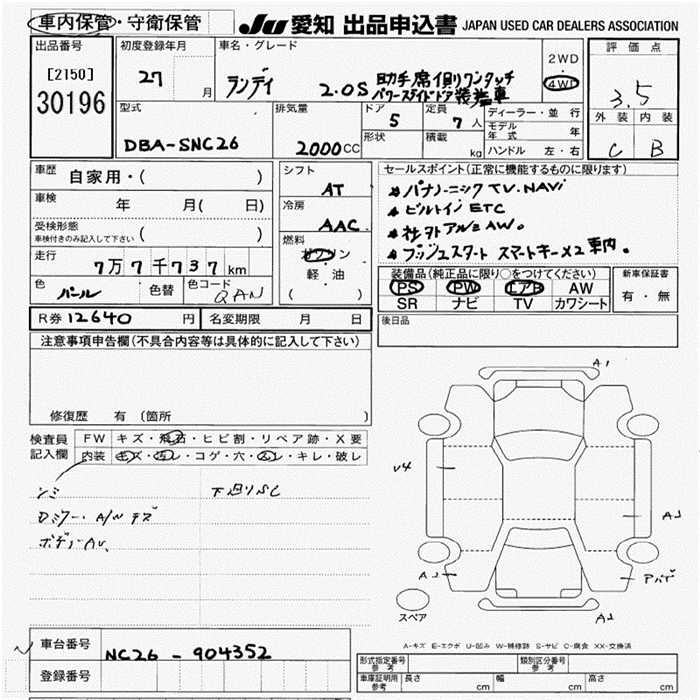 車内保管・守衛保管
JU 愛知 出品申込書 JAPAN USED CAR DEALERS ASSOCIATION
出品番号
[2150]
30196
初度登録年月
27 月
車名・グレード
ランディ 2.0S 助手席側ワンタッチ
パワースライドドア装着車
2WD
・
4WD
評価点
3.5
外装 内装
C B
型式
DBA-SNC26
排気量
2000CC
ドア
5
形状
定員
7人
積載
kg
ディーラー・並行
モデル年式 年
ハンドル 左・右
車歴
自家用・( )
車検
年 月( 日)
受検形態
車検付きのみ記入して下さい ( )
走行
7万7千737km
色
パール
色替
色コード
QAN
シフト
AT
冷房
AAC
燃料
ガソリン
・
軽油
( )
セールスポイント(正常に機能するものに限ります)
パナソニックTV.NAVi
ビルトインETC
社外アルミAW。
プッシュスタート スマートキー×2車内。
装備品(純正品に限り○をつけてください)
PS PW エアB AW
SR ナビ TV カワシート
新車保証書
有・無
R券 12640 円
名変期限 月 日
後日品
注意事項申告欄(不具合内容等は具体的に記入して下さい)
修復歴 有 (箇所 )
検査員
記入欄
FW キズ・飛石・ヒビ割・リペア跡・X要
内装 キズ・汚レ・コゲ・穴・スレ・キレ・破レ
シミ
下廻りサビ
Dミラー・A/Wキズ
ボディーAU、
A1
U4
A2
A2
アバデ
A2
スペア
A-キズ E-エクボ U-凹み W-補修跡 S-サビ C-腐食 XX-交換済
車台番号
NC26-904352
登録番号
形式指定番号
参考
類別区分番号
参考
車庫証明用
参考
長さ cm
幅 cm
高さ cm